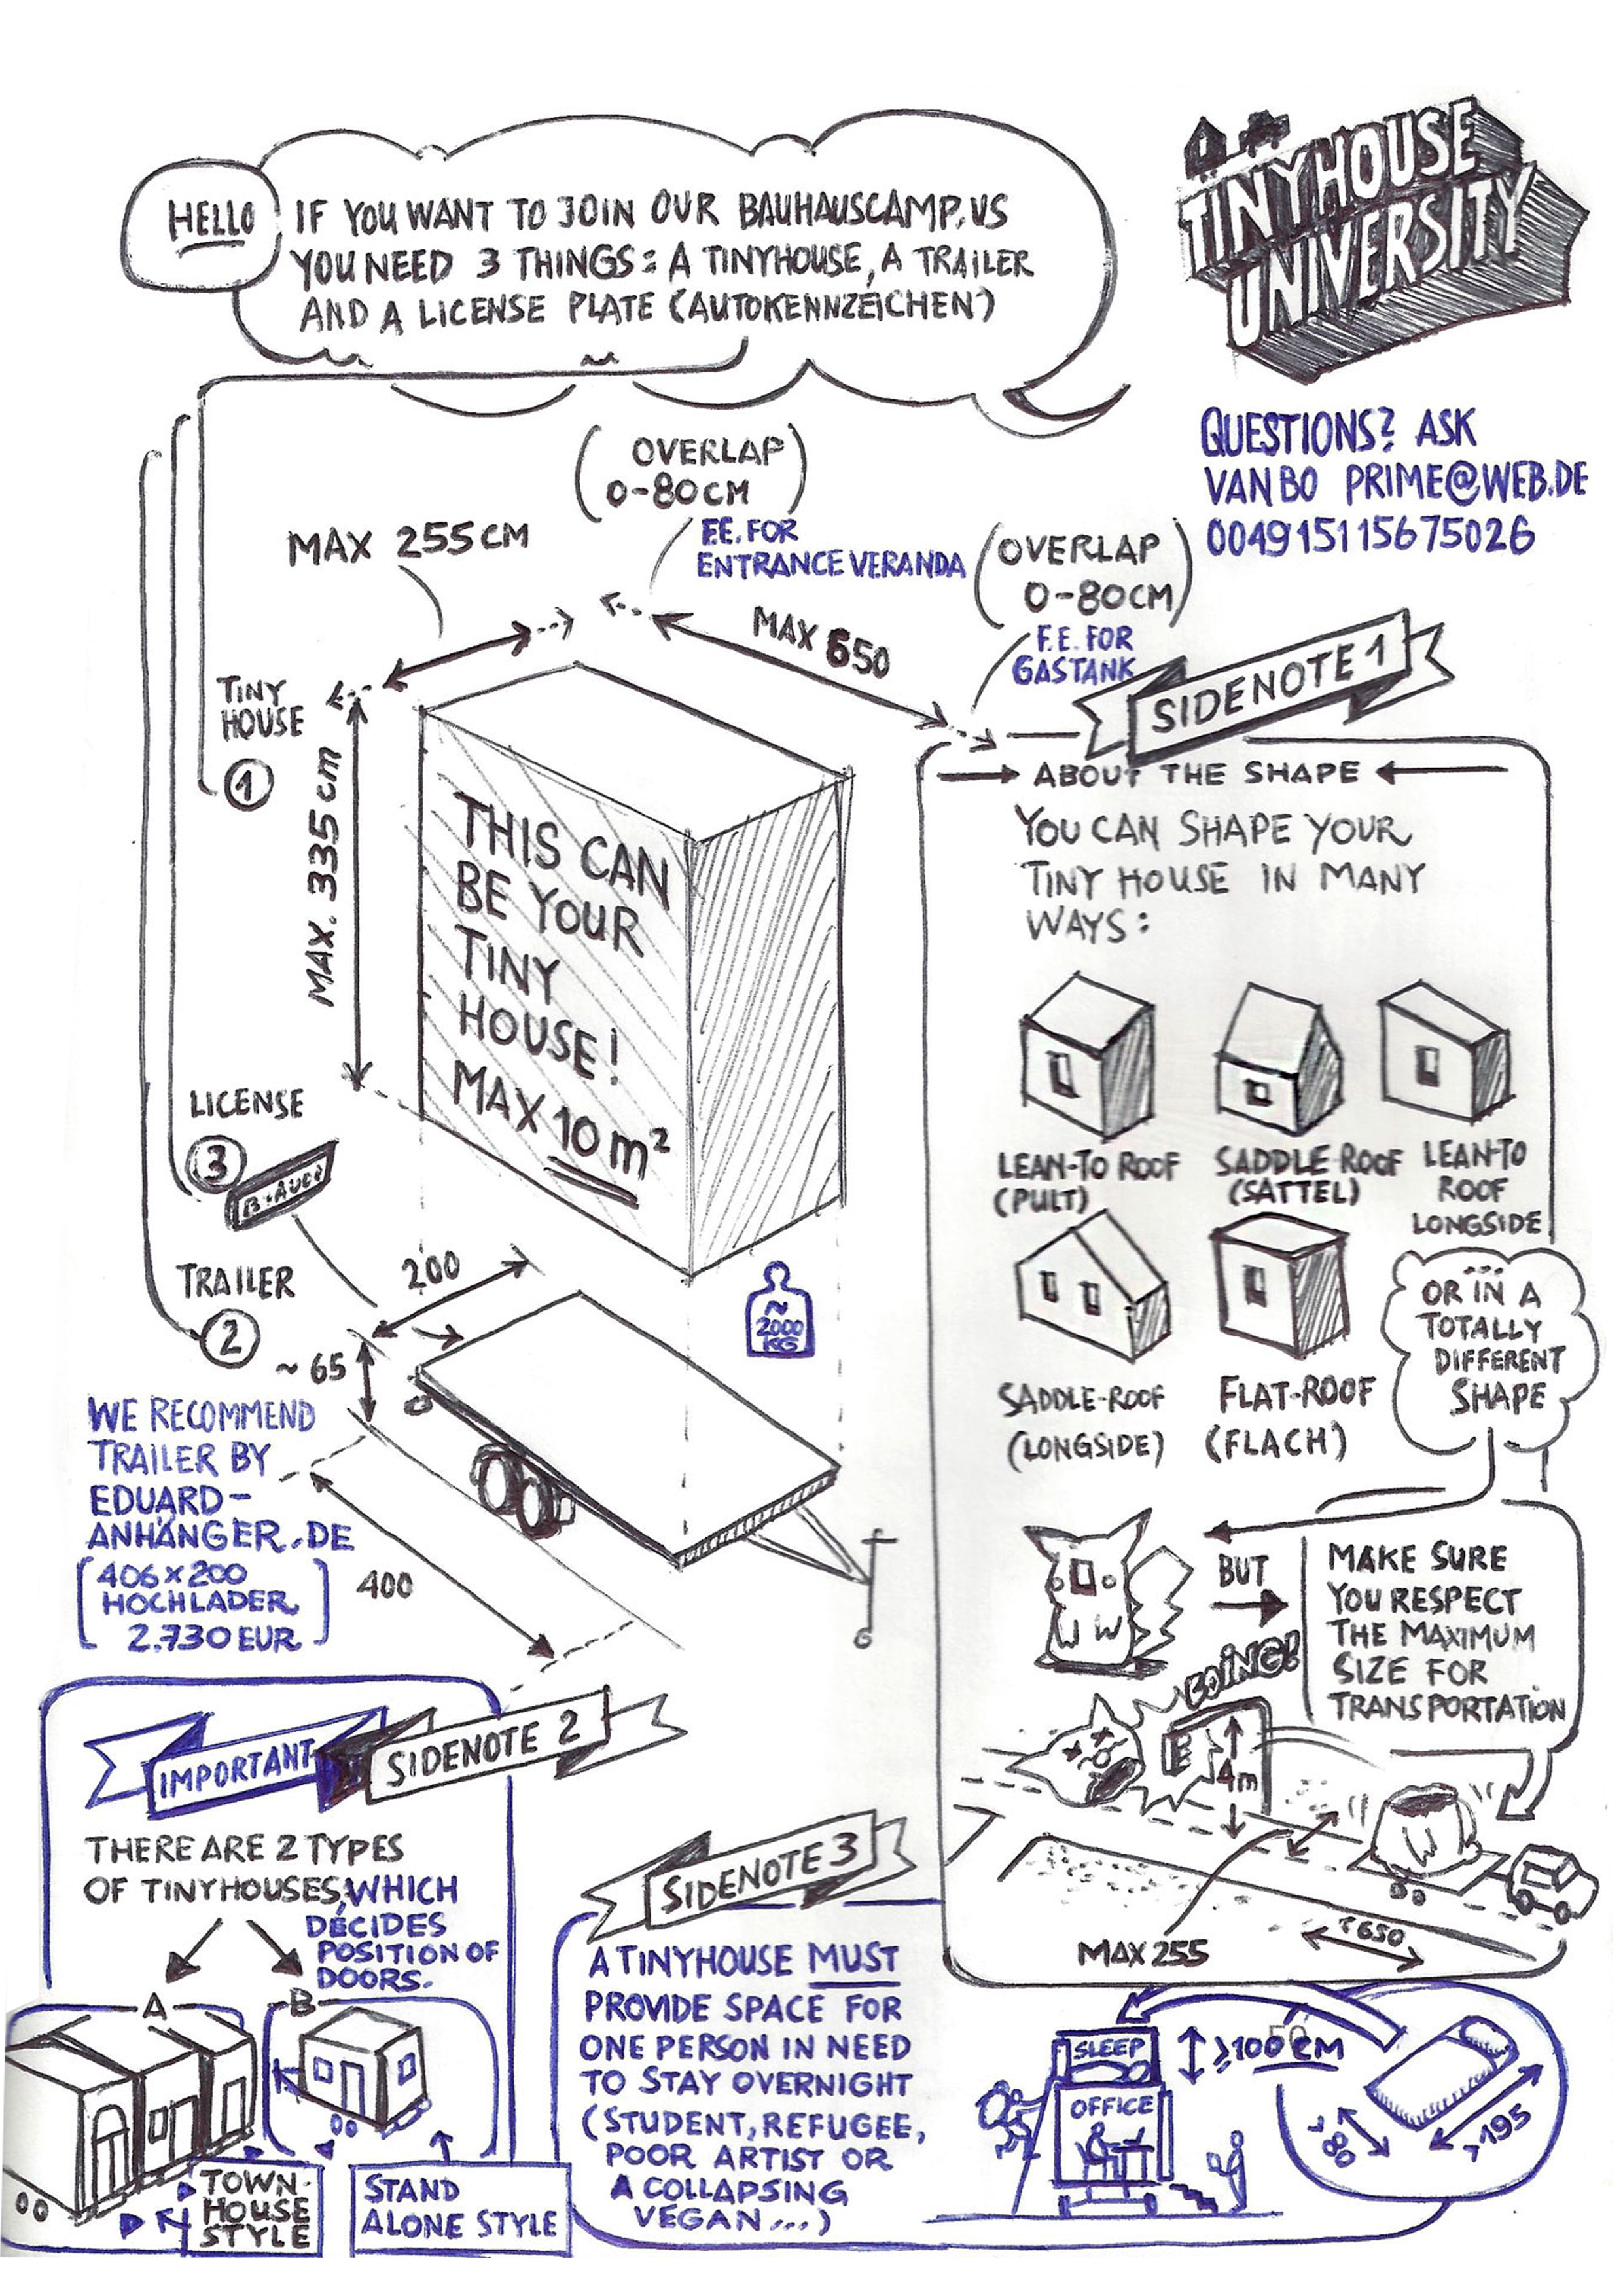 HELLO
IF YOU WANT TO JOIN OUR BAUHAUSCAMP, US
YOU NEED 3 THINGS: A TINYHOUSE, A TRAILER
AND A LICENSE PLATE (AUTOKENNZEICHEN)
TINYHOUSE
UNIVERSITY
QUESTIONS? ASK
VAN BO PRIME@WEB.DE
004915115675026
(OVERLAP
0-80CM)
F.E. FOR
ENTRANCE VERANDA
MAX 255CM
(OVERLAP
0-80CM)
F.E. FOR
GASTANK
MAX 650
TINY
HOUSE
1
MAX. 335cm
THIS CAN
BE YOUR
TINY
HOUSE!
MAX 10 m²
LICENSE
3
TRAILER
2
200
~65
~
2000
KG
400
WE RECOMMEND
TRAILER BY
EDUARD-
ANHÄNGER.DE
[406x200
HOCHLADER
2.730 EUR]
SIDENOTE 1
ABOUT THE SHAPE
YOU CAN SHAPE YOUR
TINY HOUSE IN MANY
WAYS:
LEAN-TO ROOF
(PULT)
SADDLE ROOF
(SATTEL)
LEAN-TO
ROOF
LONGSIDE
SADDLE-ROOF
(LONGSIDE)
FLAT-ROOF
(FLACH)
OR IN A
TOTALLY
DIFFERENT
SHAPE
BUT
MAKE SURE
YOU RESPECT
THE MAXIMUM
SIZE FOR
TRANSPORTATION
BOING!
4m
MAX 255
650
IMPORTANT
SIDENOTE 2
THERE ARE 2 TYPES
OF TINYHOUSES, WHICH
DECIDES
POSITION OF
DOORS.
A
B
TOWN-
HOUSE
STYLE
STAND
ALONE STYLE
SIDENOTE 3
A TINYHOUSE MUST
PROVIDE SPACE FOR
ONE PERSON IN NEED
TO STAY OVERNIGHT
(STUDENT, REFUGEE,
POOR ARTIST OR
A COLLAPSING
VEGAN....)
SLEEP
OFFICE
≥100 CM
>80
>195